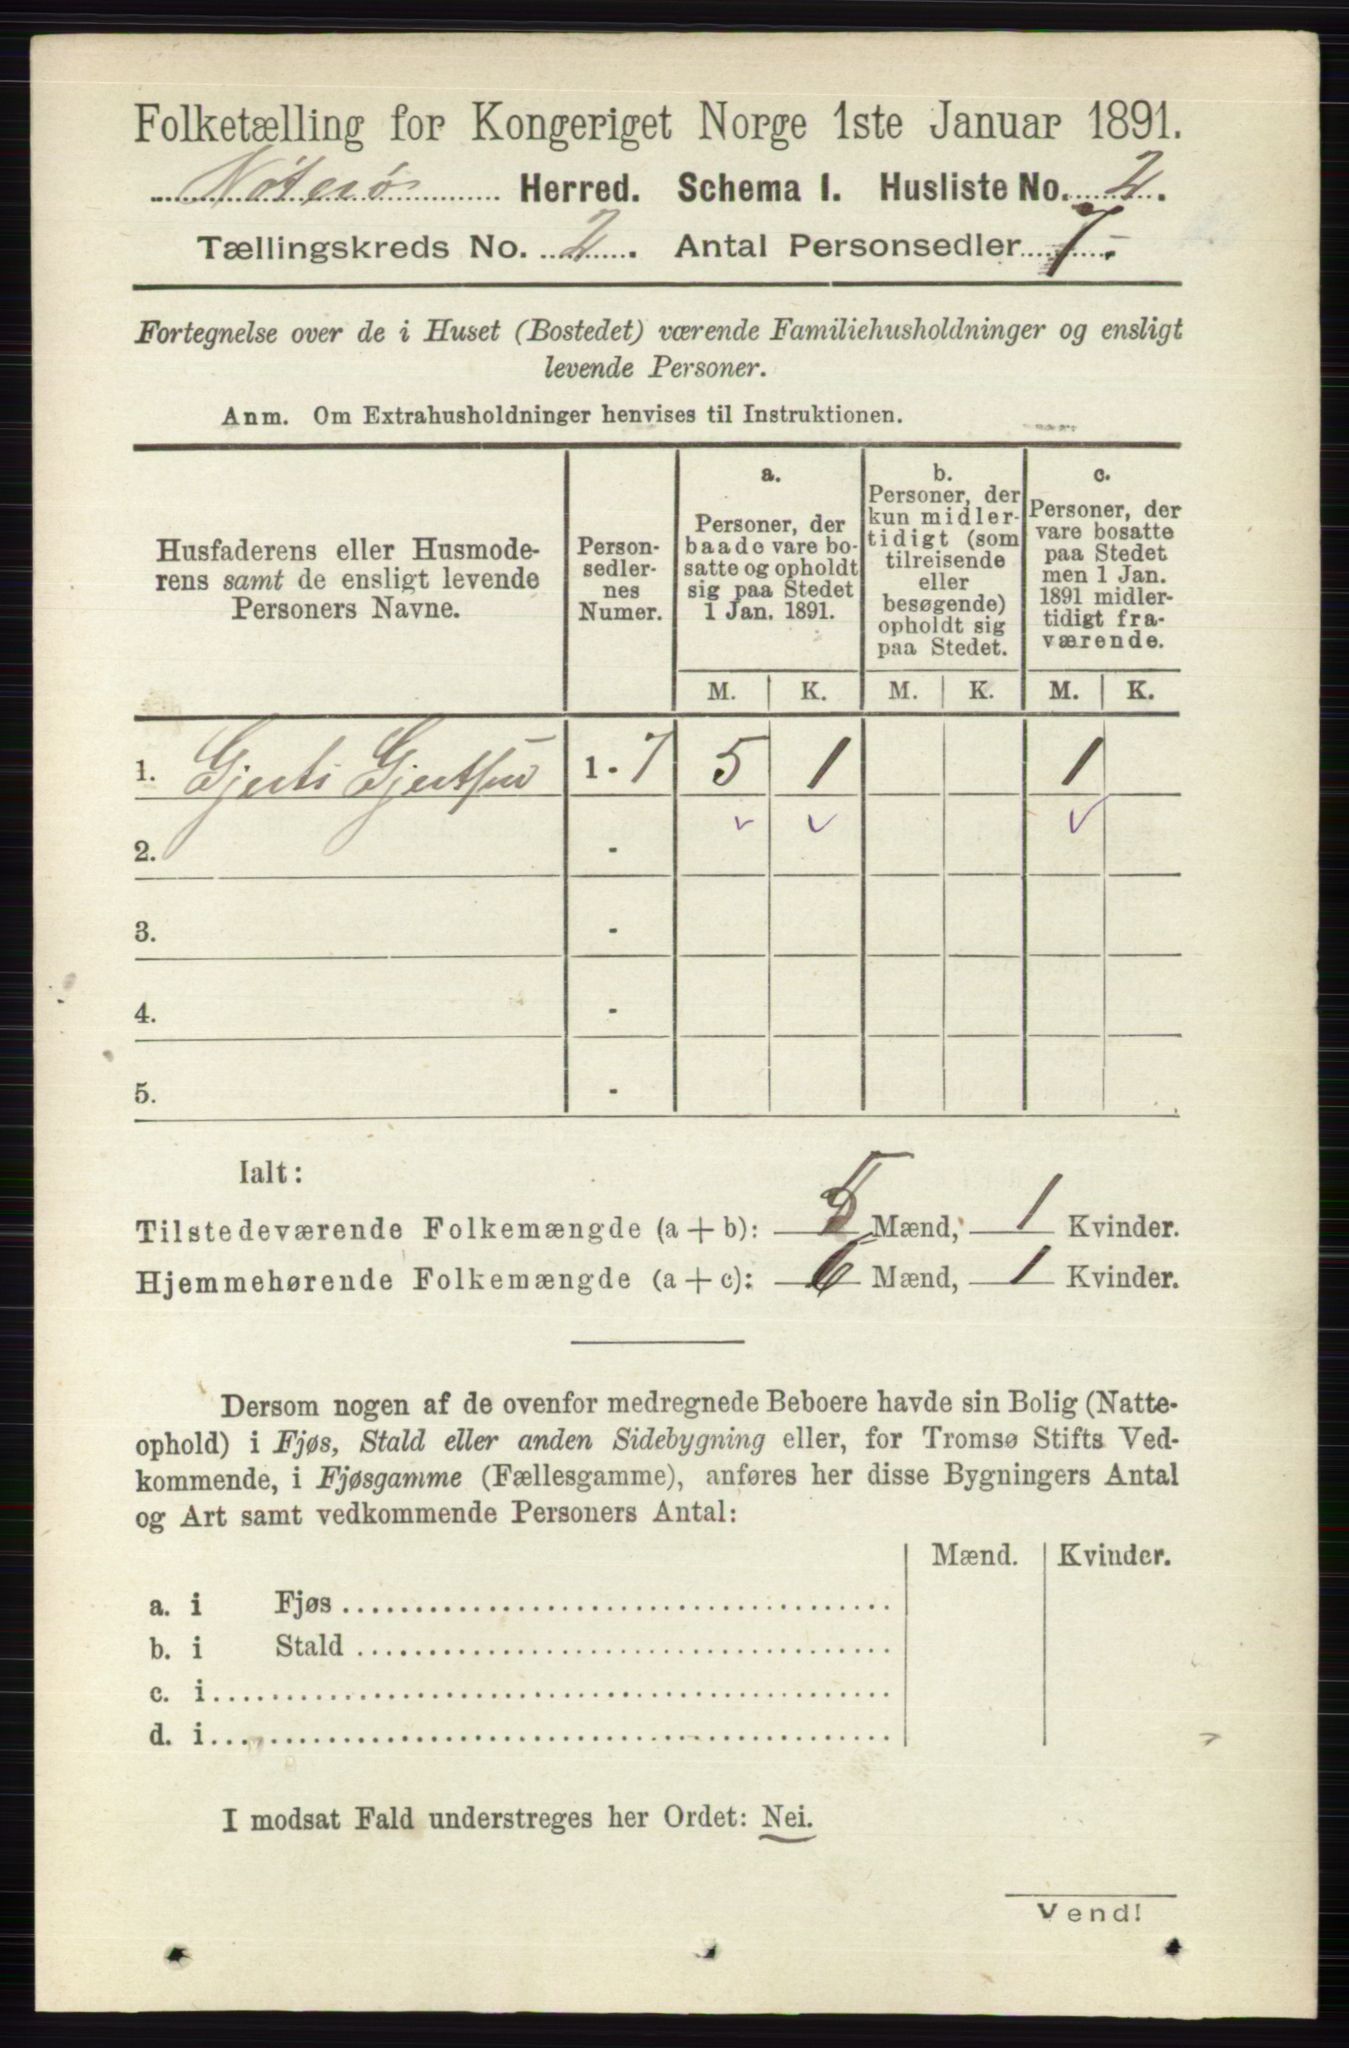 Folketælling for Kongeriget Norge 1ste Januar 1891.
Nøterø Herred. Schema I. Husliste No. 2.
Tællingskreds No. 2. Antal Personsedler 7.
Fortegnelse over de i Huset (Bostedet) værende Familiehusholdninger og ensligt
levende Personer.
Anm. Om Extrahusholdninger henvises til Instruktionen.
Husfaderens eller Husmode-
rens samt de ensligt levende
Personers Navne.
Person-
sedler-
nes
Numer.
a.
Personer, der
baade vare bo-
satte og opholdt
sig paa Stedet
1 Jan. 1891.
b.
Personer, der
kun midler-
tidigt (som
tilreisende
eller
besøgende)
opholdt sig
paa Stedet.
c.
Personer, der
vare bosatte
paa Stedet
men 1 Jan.
1891 midler-
tidigt fra-
værende.
M. K. M. K. M. K.
1. Gjert Gjertsen 1 - 7 5 1 1
2. -
3. -
4. -
5. -
Ialt:
Tilstedeværende Folkemængde (a + b): 5 Mænd, 1 Kvinder.
Hjemmehørende Folkemængde (a + c): 6 Mænd, 1 Kvinder.
Dersom nogen af de ovenfor medregnede Beboere havde sin Bolig (Natte-
ophold) i Fjøs, Stald eller anden Sidebygning eller, for Tromsø Stifts Ved-
kommende, i Fjøsgamme (Fællesgamme), anføres her disse Bygningers Antal
og Art samt vedkommende Personers Antal:
Mænd. Kvinder.
a. i Fjøs
b. i Stald
c. i
d. i
I modsat Fald understreges her Ordet: Nei.
Vend!